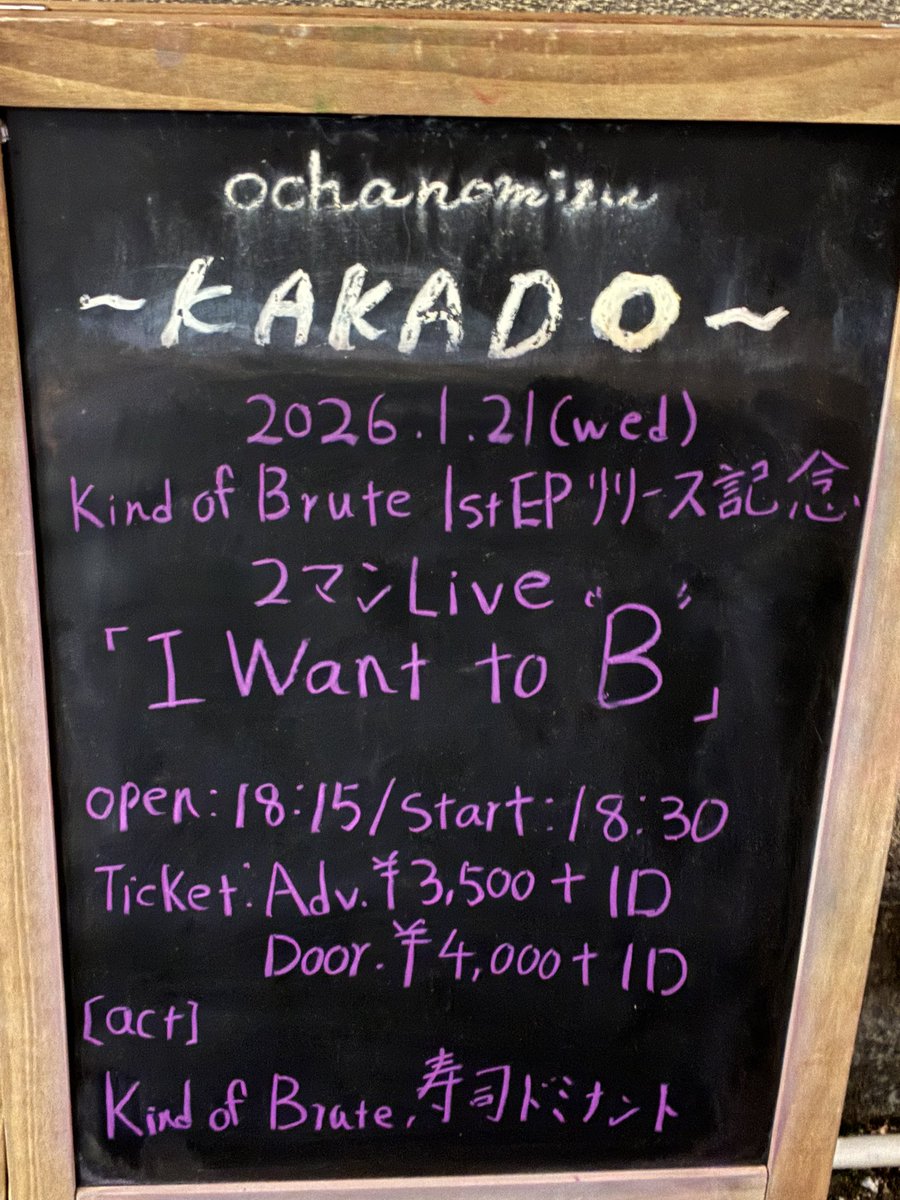 ochanomizu
~KAKADO~
2026.1.21(wed)
Kind of Brute 1stEPリリース記念
2マンLive
「I Want to "B"」
open:18:15/Start:18:30
Ticket:Adv.¥3,500+1D
Door.¥4,000+1D
[act]
Kind of Brute,寿司ドミナント